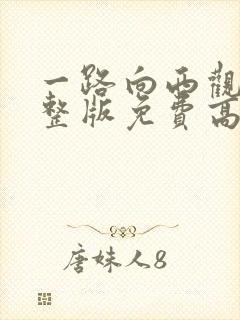 一路向西觀
整版免費高
唐妹人8